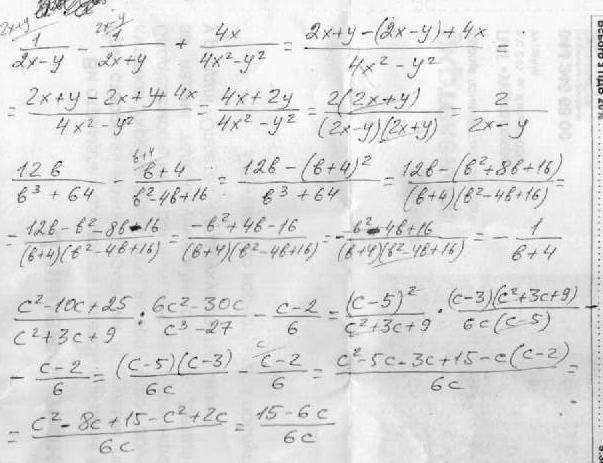 2x+y 2x-y
1/(2x-y) - 1/(2x+y) + 4x/(4x²-y²) = (2x+y-(2x-y)+4x)/(4x²-y²) =
= (2x+y-2x+y+4x)/(4x²-y²) = (4x+2y)/(4x²-y²) = 2(2x+y)/((2x-y)(2x+y)) = 2/(2x-y)
в+4
12в/(в³+64) - (в+4)/(в²-4в+16) = (12в-(в+4)²)/(в³+64) = (12в-(в²+8в+16))/((в+4)(в²-4в+16)) =
= (12в-в²-8в-16)/((в+4)(в²-4в+16)) = (-в²+4в-16)/((в+4)(в²-4в+16)) = -(в²-4в+16)/((в+4)(в²-4в+16)) = -1/(в+4)
(c²-10c+25)/(c²+3c+9) : (6c²-30c)/(c³-27) - (c-2)/6 = (c-5)²/(c²+3c+9) · (c-3)(c²+3c+9)/(6c(c-5))
- (c-2)/6 = (c-5)(c-3)/(6c) - (c-2)/6 = (c²-5c-3c+15-c(c-2))/(6c) =
= (c²-8c+15-c²+2c)/(6c) = (15-6c)/(6c)